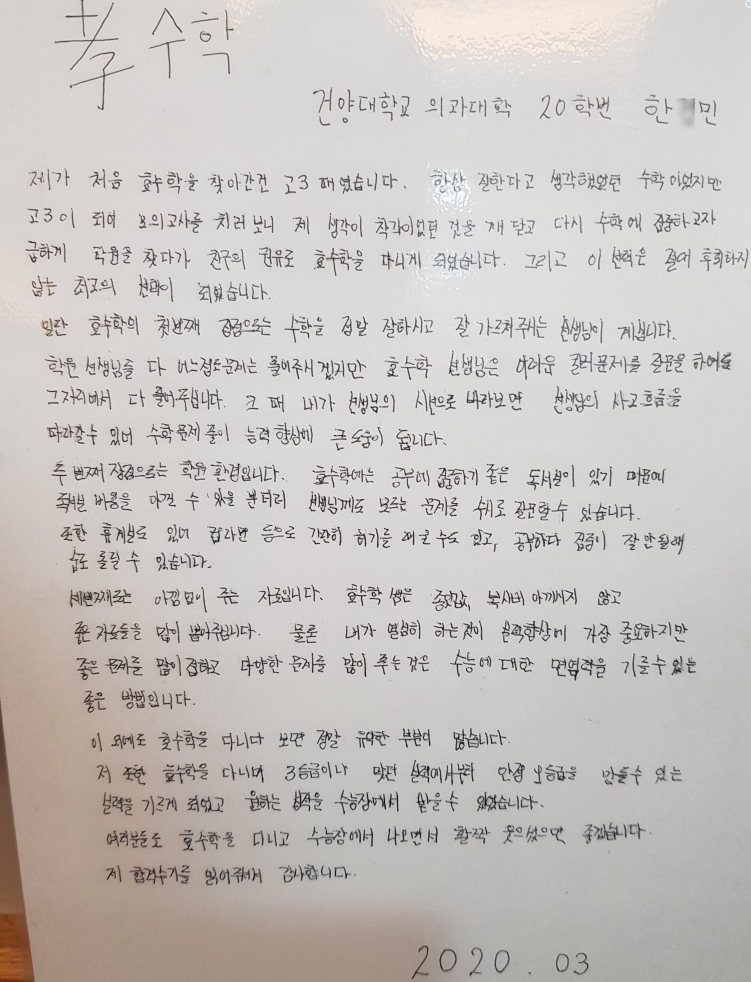 孝수학
건양대학교 의과대학 20학번 한 민
제가 처음 효수학을 찾아간건 고3 때였습니다. 항상 잘한다고 생각했었던 수학이었지만
고3이 되어 모의고사를 치러보니 제 생각이 착각이었던 것을 깨닫고 다시 수학에 집중하고자
급하게 학원을 찾다가 친구의 권유로 효수학을 다니게 되었습니다. 그리고 이 선택은 절대 후회하지
않는 최고의 선택이 되었습니다.
일단 효수학의 첫번째 장점으로는 수학을 정말 잘하시고 잘 가르쳐주시는 선생님이 계십니다.
학원 선생님들 다 어느정도문제는 풀어주시겠지만 효수학 선생님은 어려운 킬러문제를 질문을 하여도
그자리에서 다 풀어주십니다. 그 때 내가 선생님의 시선으로 바라보면 선생님의 사고흐름을
따라갈수 있어 수학문제 풀이 능력향상에 큰 도움이 됩니다.
두 번째 장점으로는 학원 환경입니다. 효수학에는 공부에 집중하기 좋은 독서실이 있기 때문에
독서실 비용을 아낄 수 있을 뿐더러 선생님께도 모르는 문제를 수시로 질문할 수 있습니다.
또한 휴게실도 있어 컵라면 등으로 간단히 허기를 때울 수도 있고, 공부하다 집중이 잘 안될때
숨도 돌릴 수 있습니다.
세번째로는 아낌없이 주는 자료입니다. 효수학 쌤은 종잇값, 복사비 아끼시지 않고
좋은 자료들을 많이 뽑아주십니다. 물론 내가 열심히 하는것이 실력향상에 가장 중요하지만
좋은 문제를 많이 접하고 다양한 문제를 많이 주는 것은 수능에 대한 면역력을 기를 수 있는
좋은 방법입니다.
이 외에도 효수학을 다니다 보면 정말 유익한 부분이 많습니다.
저 또한 효수학을 다니며 3등급이나 맞던 실력에서부터 안정 1등급을 만들수 있는
실력을 기르게 되었고 원하는 성적을 수능장에서 받을 수 있었습니다.
여러분들도 효수학을 다니고 수능장에서 나오면서 활짝 웃으셨으면 좋겠습니다.
제 합격수기를 읽어주셔서 감사합니다.
2020.03